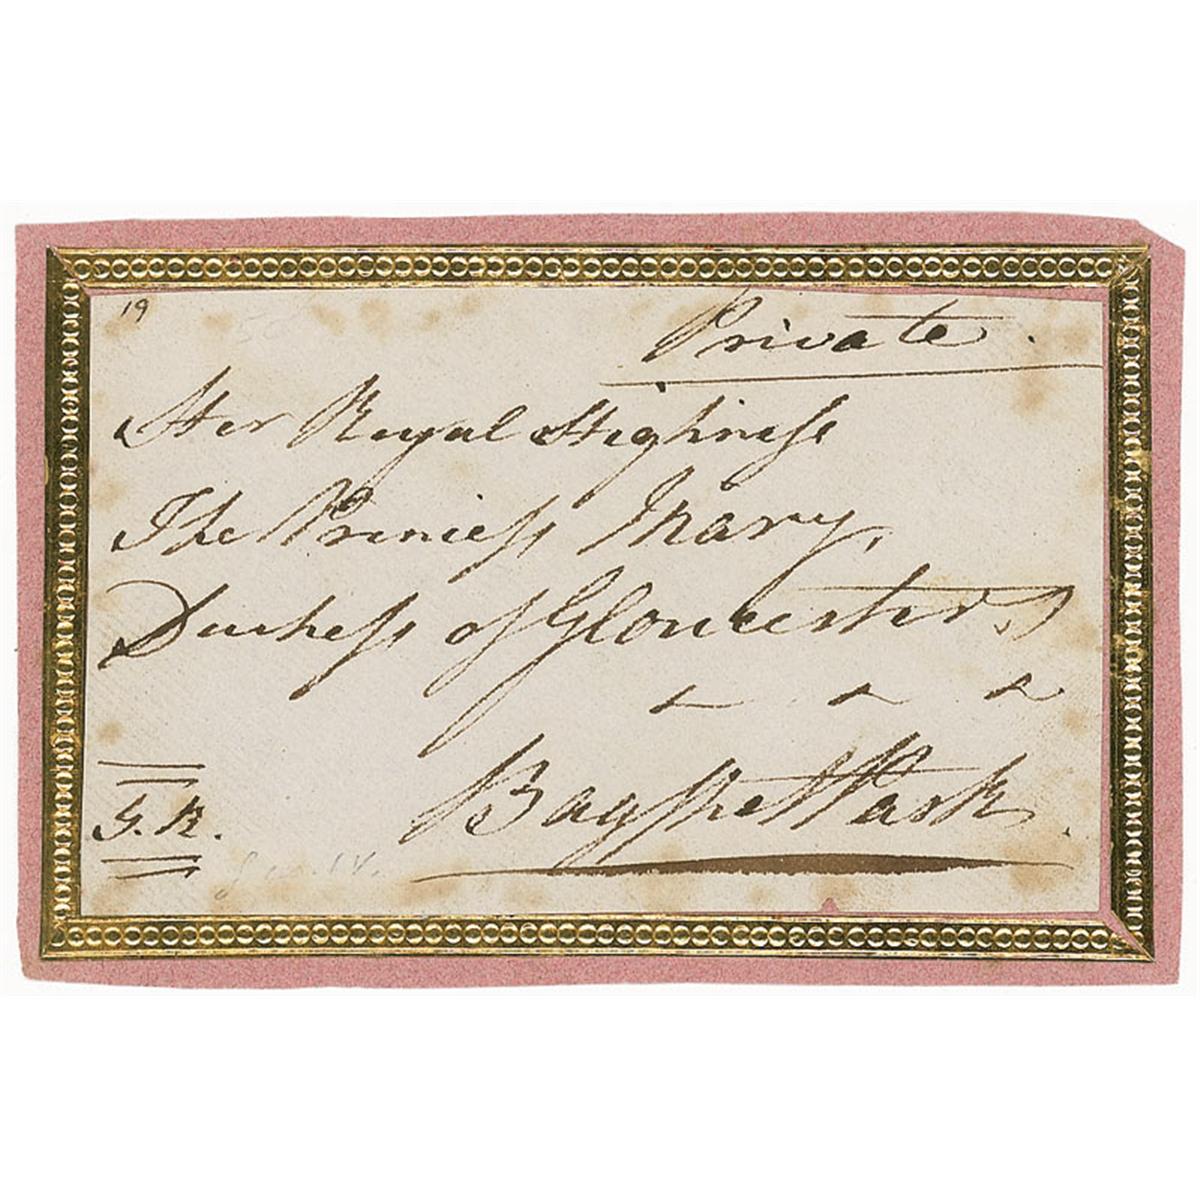 19
Private.
Her Royal Highness
The Princess Mary,
Duchess of Gloucester,
Bagshot Park.
G.R.
Geo. IV.